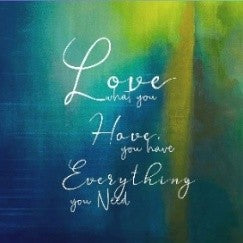 Love
what you
Have,
you have
Everything
you Need